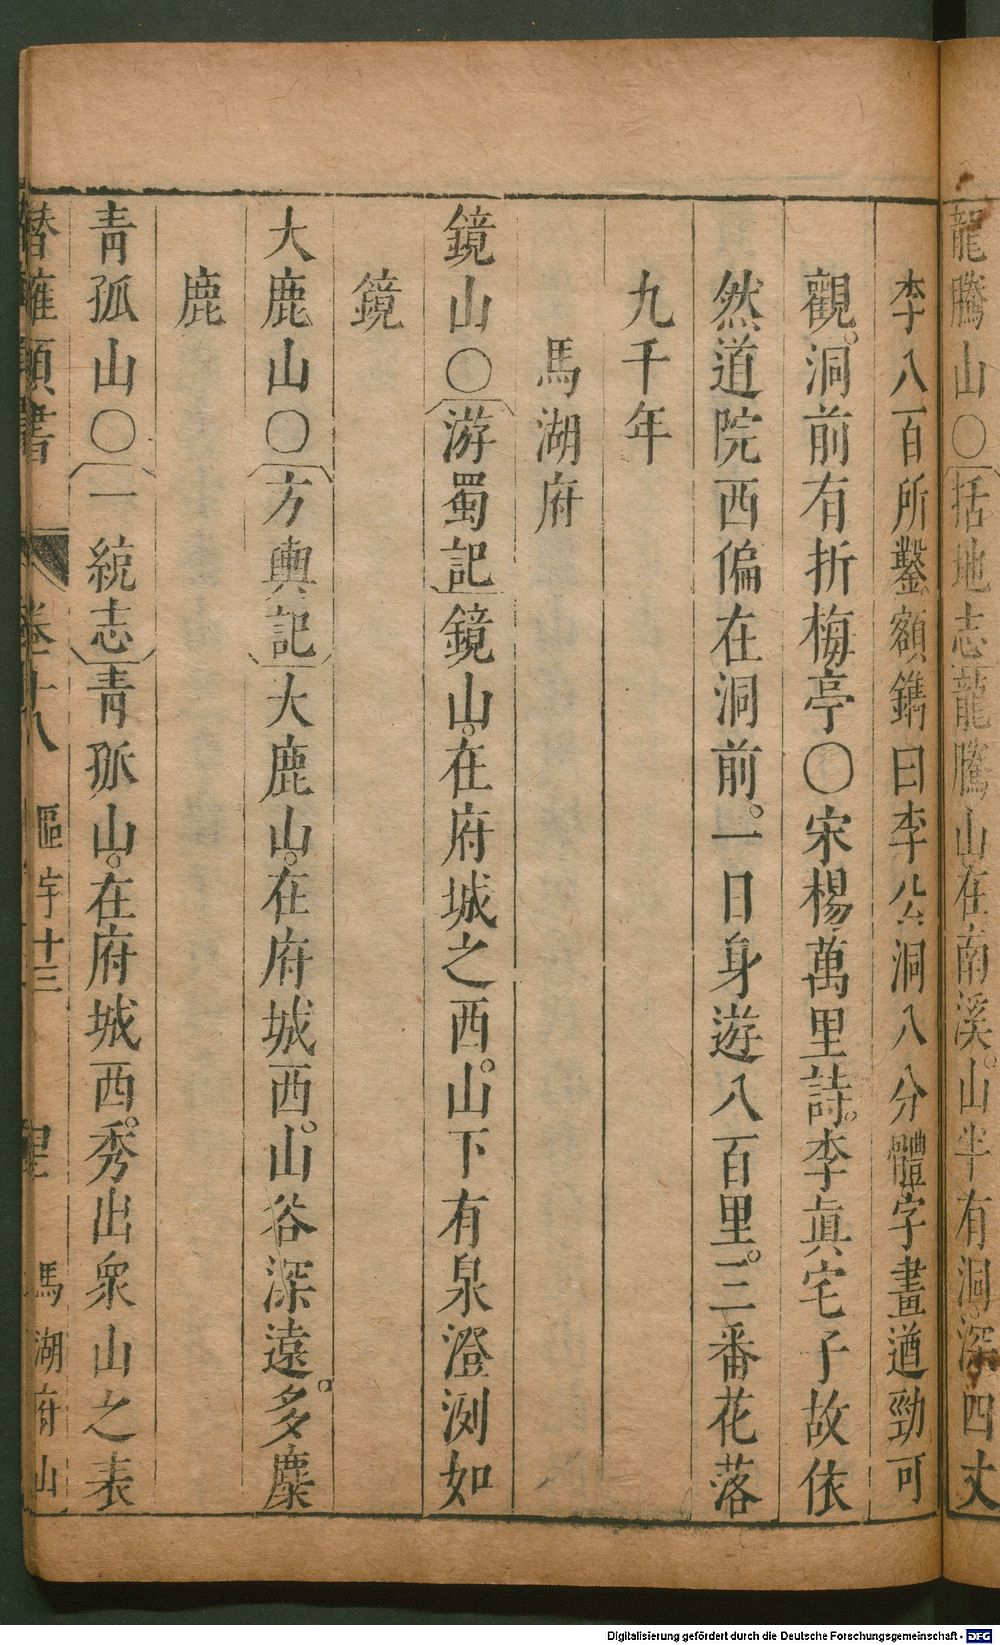 龍騰山〇括地志龍騰山在南溪。山半有洞。深四丈
李八百所鑿。額鐫曰李公洞八分體字畫遒勁可
觀。洞前有折梅亭〇宋楊萬里詩。李眞宅子故依
然道院西偏在洞前。一日身遊八百里。三番花落
九千年
馬湖府
鏡山〇游蜀記鏡山。在府城之西。山下有泉澄洌如
鏡
大鹿山〇方輿記大鹿山。在府城西。山谷深遠。多麋
鹿
青孤山〇一統志青孤山。在府城西。秀出衆山之表
潛確類書 卷十八 區宇十三 馬湖府山
Digitalisierung gefördert durch die Deutsche Forschungsgemeinschaft - DFG